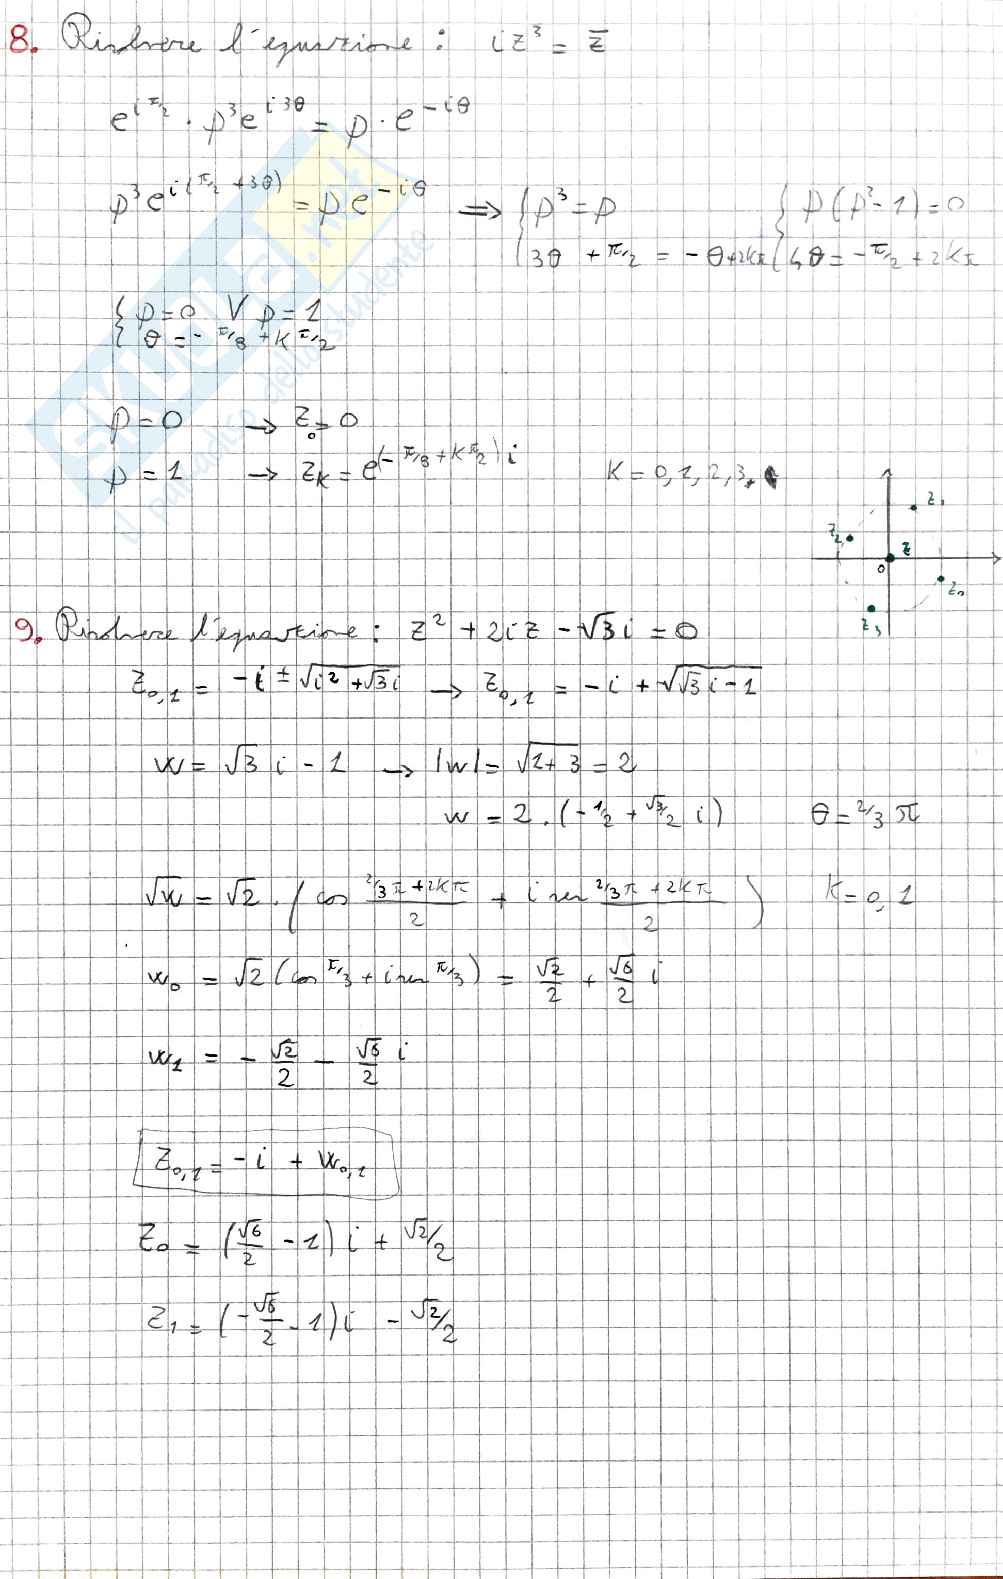 8. Risolvere l'equazione : iz³ = z̄
e^{iπ/2} · ρ³e^{i3θ} = ρ · e^{-iθ}
ρ³e^{i(π/2 + 3θ)} = ρe^{-iθ} ⇒ { ρ³ = ρ { ρ(ρ²-1) = 0
{ 3θ + π/2 = -θ + 2kπ { 4θ = -π/2 + 2kπ
{ ρ = 0 ∨ ρ = 1
{ θ = -π/8 + kπ/2
ρ = 0 → z₀ = 0
ρ = 1 → z_K = e^{(-π/8 + kπ/2)i} K = 0, 1, 2, 3.
z₁
z₂
z
0
z₀
z₃
9. Risolvere l'equazione : z² + 2iz - √3i = 0
z₀,₁ = -i ± √(i² + √3i) → z₀,₁ = -i + √(√3i - 1)
w = √3 i - 1 → |w| = √(1+3) = 2
w = 2 · (-1/2 + √3/2 i) θ = 2/3 π
√w = √2 · ( cos (2/3π + 2kπ)/2 + i sen (2/3π + 2kπ)/2 ) K = 0, 1
w₀ = √2 (cos π/3 + i sen π/3) = √2/2 + √6/2 i
w₁ = - √2/2 - √6/2 i
z₀,₁ = -i + w₀,₁
z₀ = (√6/2 - 1) i + √2/2
z₁ = (-√6/2 - 1) i - √2/2
SKUOLA.net
il paradiso dello studente